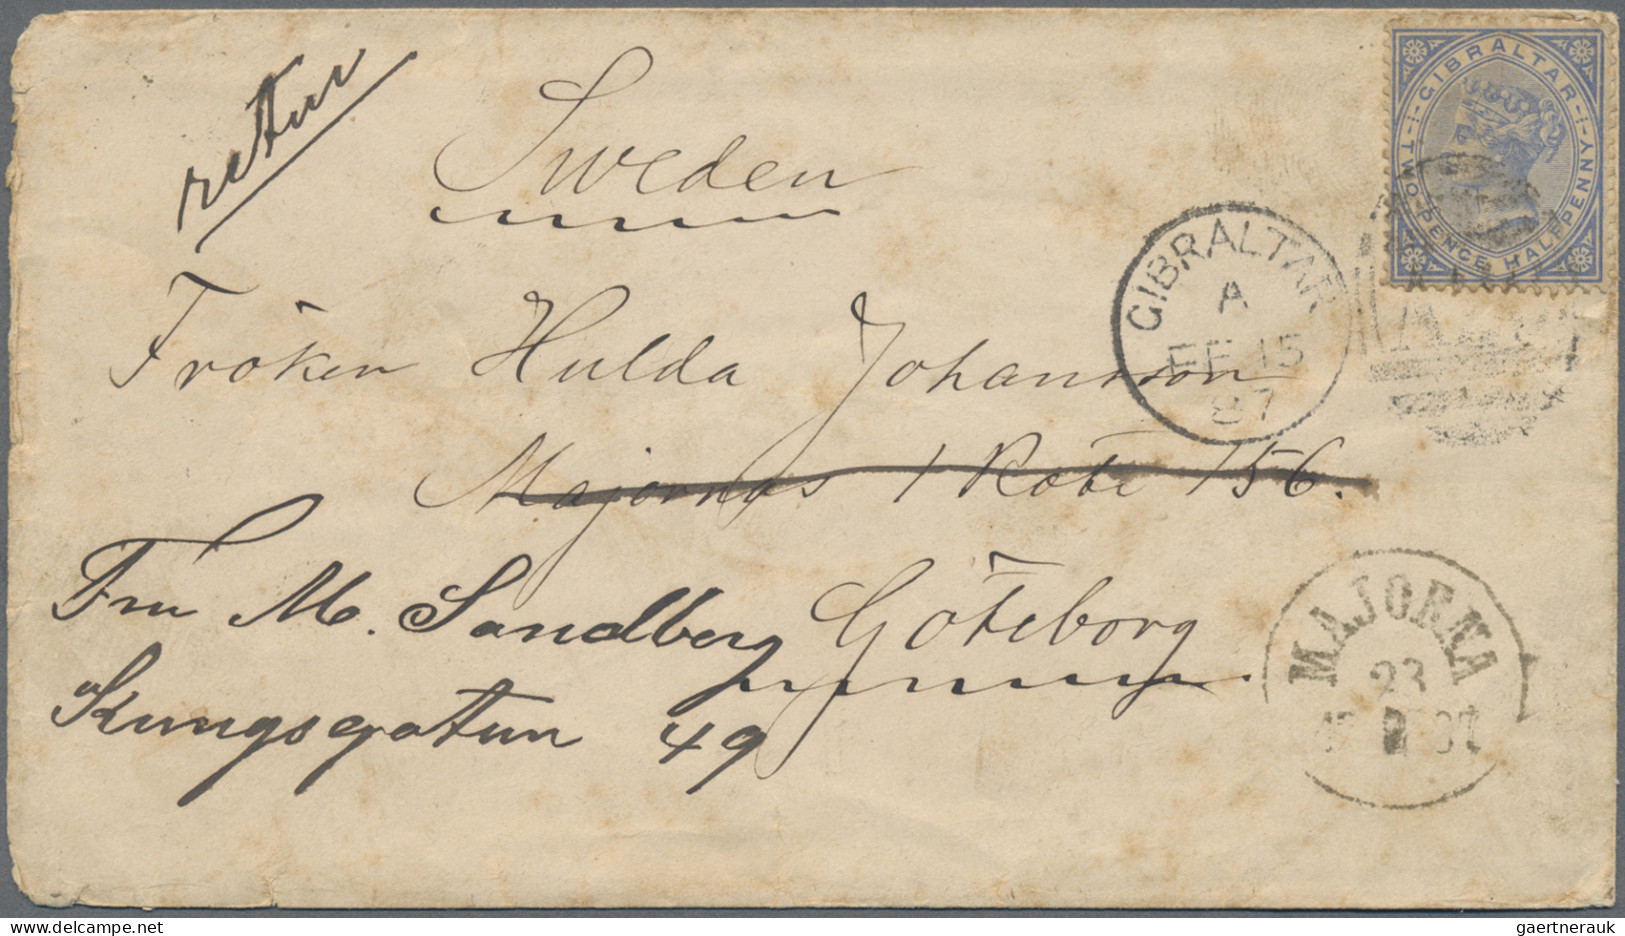 retur
Sweden
GIBRALTAR
TWO PENCE HALFPENNY
GIBRALTAR
A
FE 15
87
Fröken Hulda Johansson
Majornas 1 Rote 156.
Göteborg
Fru M. Sandberg
Kungsgatan 49
MAJORNA
23
gaertnerauk